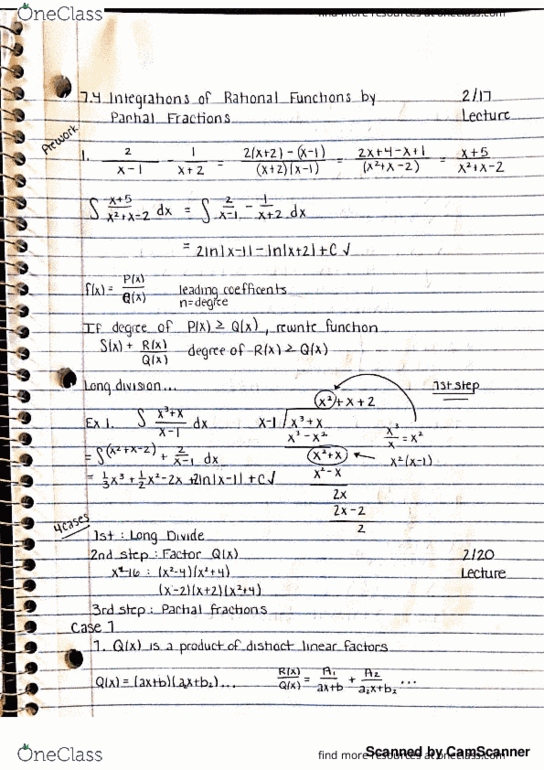 OneClass
find more resources at oneclass.com
7.4 Integrations of Rational Functions by 2/17
Partial Fractions Lecture
Prework
1. 2/(x-1) - 1/(x+2) = (2(x+2)-(x-1))/((x+2)(x-1)) = (2x+4-x+1)/((x²+x-2)) = (x+5)/(x²+x-2)
∫ (x+5)/(x²+x-2) dx = ∫ 2/(x-1) - 1/(x+2) dx
= 2ln|x-1| - ln|x+2| + C √
f(x) = P(x)/Q(x) leading coefficents
n=degree
If degree of P(x) ≥ Q(x), rewrite function
S(x) + R(x)/Q(x) degree of R(x) ≥ Q(x)
Long division...
1st step
x² + x + 2
Ex 1. ∫ (x³+x)/(x-1) dx x-1 ) x³ + x
x³ - x² x³/x = x²
= ∫ (x²+x-2) + 2/(x-1) dx x² + x x²(x-1)
= 1/3x³ + 1/2x² - 2x + 2ln|x-1| + C √ x² - x
2x
2x - 2
2
4 cases
1st : Long Divide
2nd step : Factor Q(x) 2/20
x⁴-16 : (x²-4)(x²+4) Lecture
(x-2)(x+2)(x²+4)
3rd step : Partial fractions
Case 1
1. Q(x) is a product of distinct linear factors
Q(x) = (ax+b)(a₂x+b₂)... R(x)/Q(x) = A₁/(ax+b) + A₂/(a₂x+b₂) ...
OneClass
find more resources at oneclass.com
Scanned by CamScanner